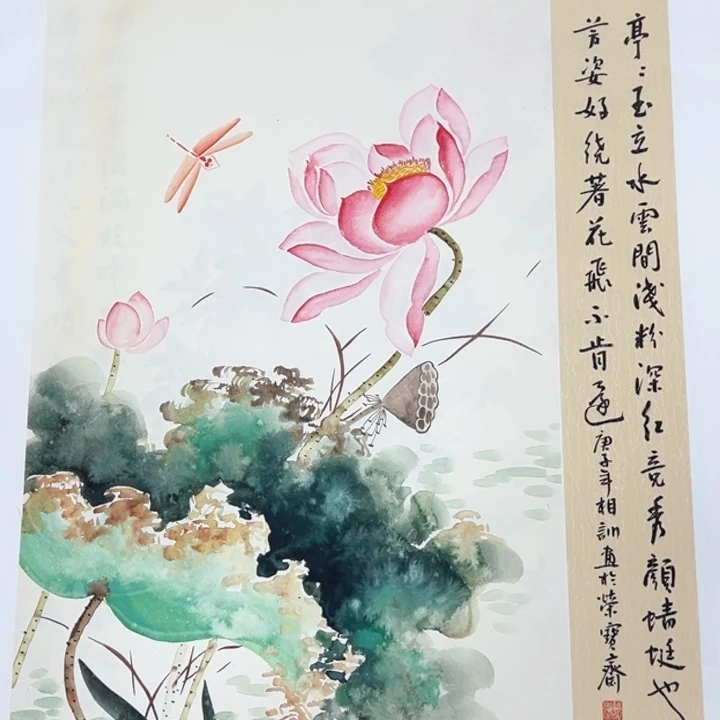 亭〻玉立水雲間淺粉深紅競秀顏蜻蜓也
言姿好繞著花飛不肯還庚子年相訓畫於榮寶齋